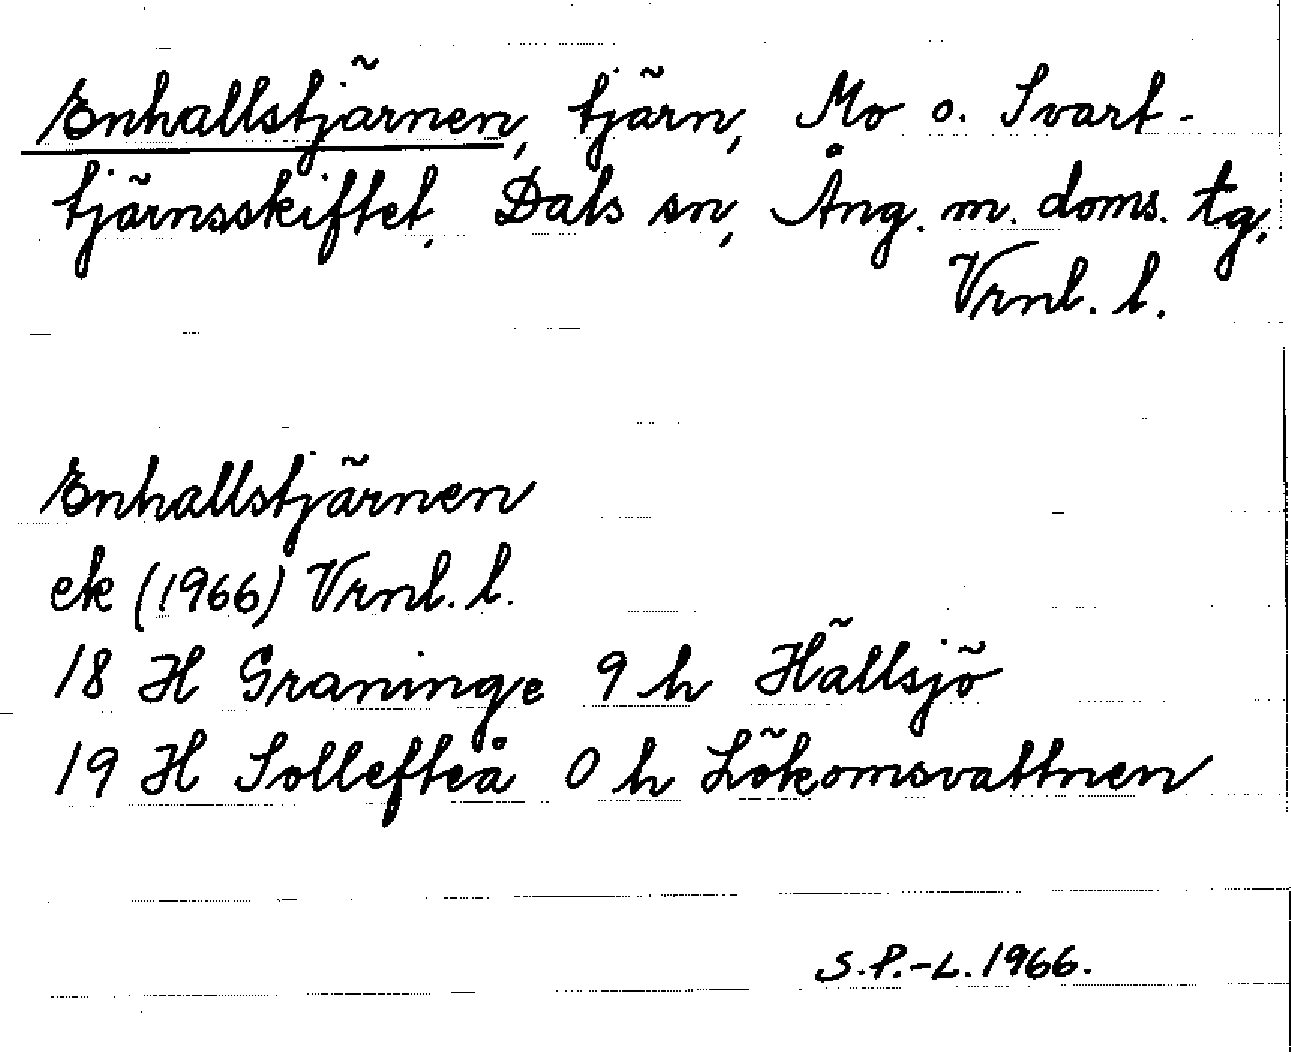 Enhallstjärnen, tjärn, Mo o. Svart-
tjärnsskiftet, Dals sn, Ång. m. doms. tg,
Vrnl. l.
Enhallstjärnen
ek (1966) Vrnl. l.
18 H Graninge 9 h Hällsjö
19 H Sollefteå 0 h Lökomsvattnen
S.P.-L. 1966.